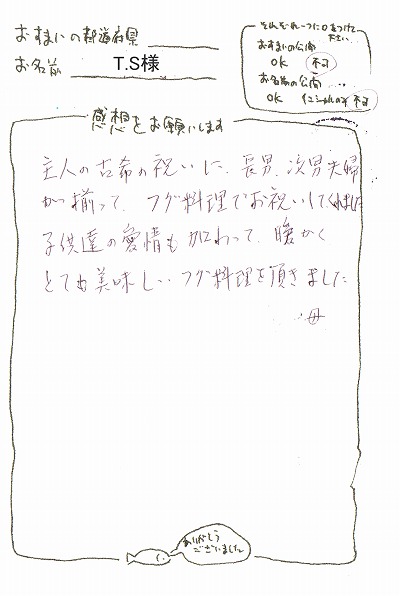 おすまいの都道府県
お名前 T.S様
それぞれ一つに○をつけて
ださい
おすまいの公開
OK 不可
お名前の公開
OK イニシャルのみ 不可
感想をお願いします
主人の古希の祝いに、長男、次男夫婦
が揃って、フグ料理でお祝いしてくれました
子供達の愛情も加わって、暖かく
とても美味しいフグ料理を頂きました
母
ありがとう
ございました